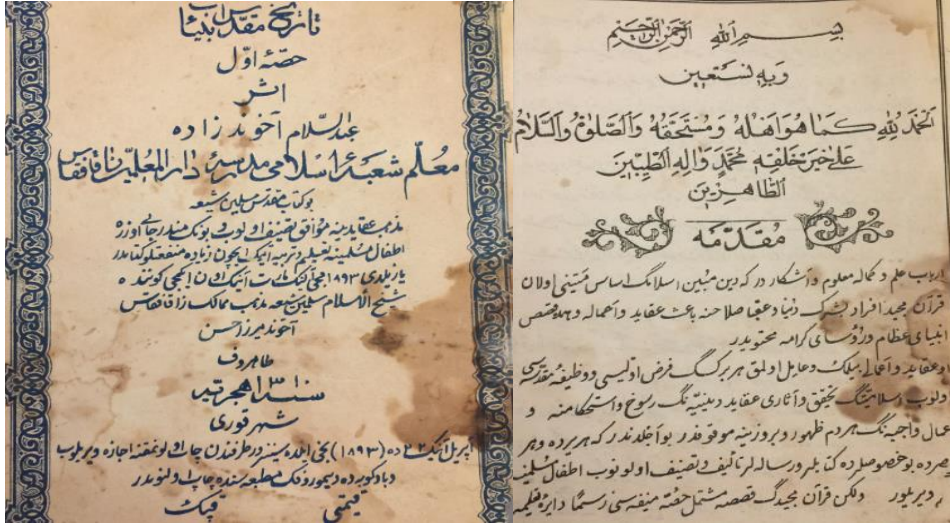 تاریخ مقدس انبیا
حصهٔ اول
اثر
عبدالسلام آخوند زاده
معلم شعبهٔ اسلامی مدرسهٔ دارالمعلمین قافقاس
بو کتاب مقدس مسلمین شیعه
مذهب عقایدینه موافق تصنیف اولونوب بونک مندرجاتی اوزره
اطفال مسلمینه تعلیم و تربیه ایتمک ایچون زیاده منفعتلو کتابدر
یازیلدی ۱۸۹۳ مارت آیینک اون
شیخ الاسلام مسلمین شیعه مذهب ممالک زاقافقاس
آخوند میرزا حسن
طاهروف
سنه ۱۳ هجریه
شهر قوری
اپریل آیینک ۲۳ ده (۱۸۹۳) نجی ایلده طرفندن چاپ اولونمقنه اجازه ویریلوب
و بادکوبه ده مطبعه سنده چاپ اولنوبدر
قیمتی قپک
بسم الله الرحمن الرحیم
وبه نستعین
الحمد لله کما هو اهله ومستحقه والصلوة والسلام
علی خیر خلقه محمد واله الطیبین
الطاهرین
مقدمه
ارباب علم و کماله معلوم و آشکار در که دین مبین اسلامک اساس متینی اولان
قرآن مجید افراد بشرک دنیا و عقبا صلاحنه باعث عقاید و اعماله و هم قصص
انبیای عظام و رؤسای کرامه محتویدر
او عقاید و اعمالی بیلمک و عامل اولمق هر بر کسک فرض اولیسی و وظیفهٔ مقدسه سی
اولوب اسلامیتنک تحقق و آثاری عقاید دینیه نک رسوخ و استحکامنه و
اعمال واجبه نک هر دم ظهور و بروزینه موقوفدر بو اجلدندر که هر یرده و هر
عصرده بو خصوصلرده کتابلر و رساله لر تألیف و تصنیف اولونوب اطفال مسلمینه
ویریلور ولکن قرآن مجیدک قصصه مشتمل حصهٔ منیفه سی رسماً دایرهٔ تعلیمه